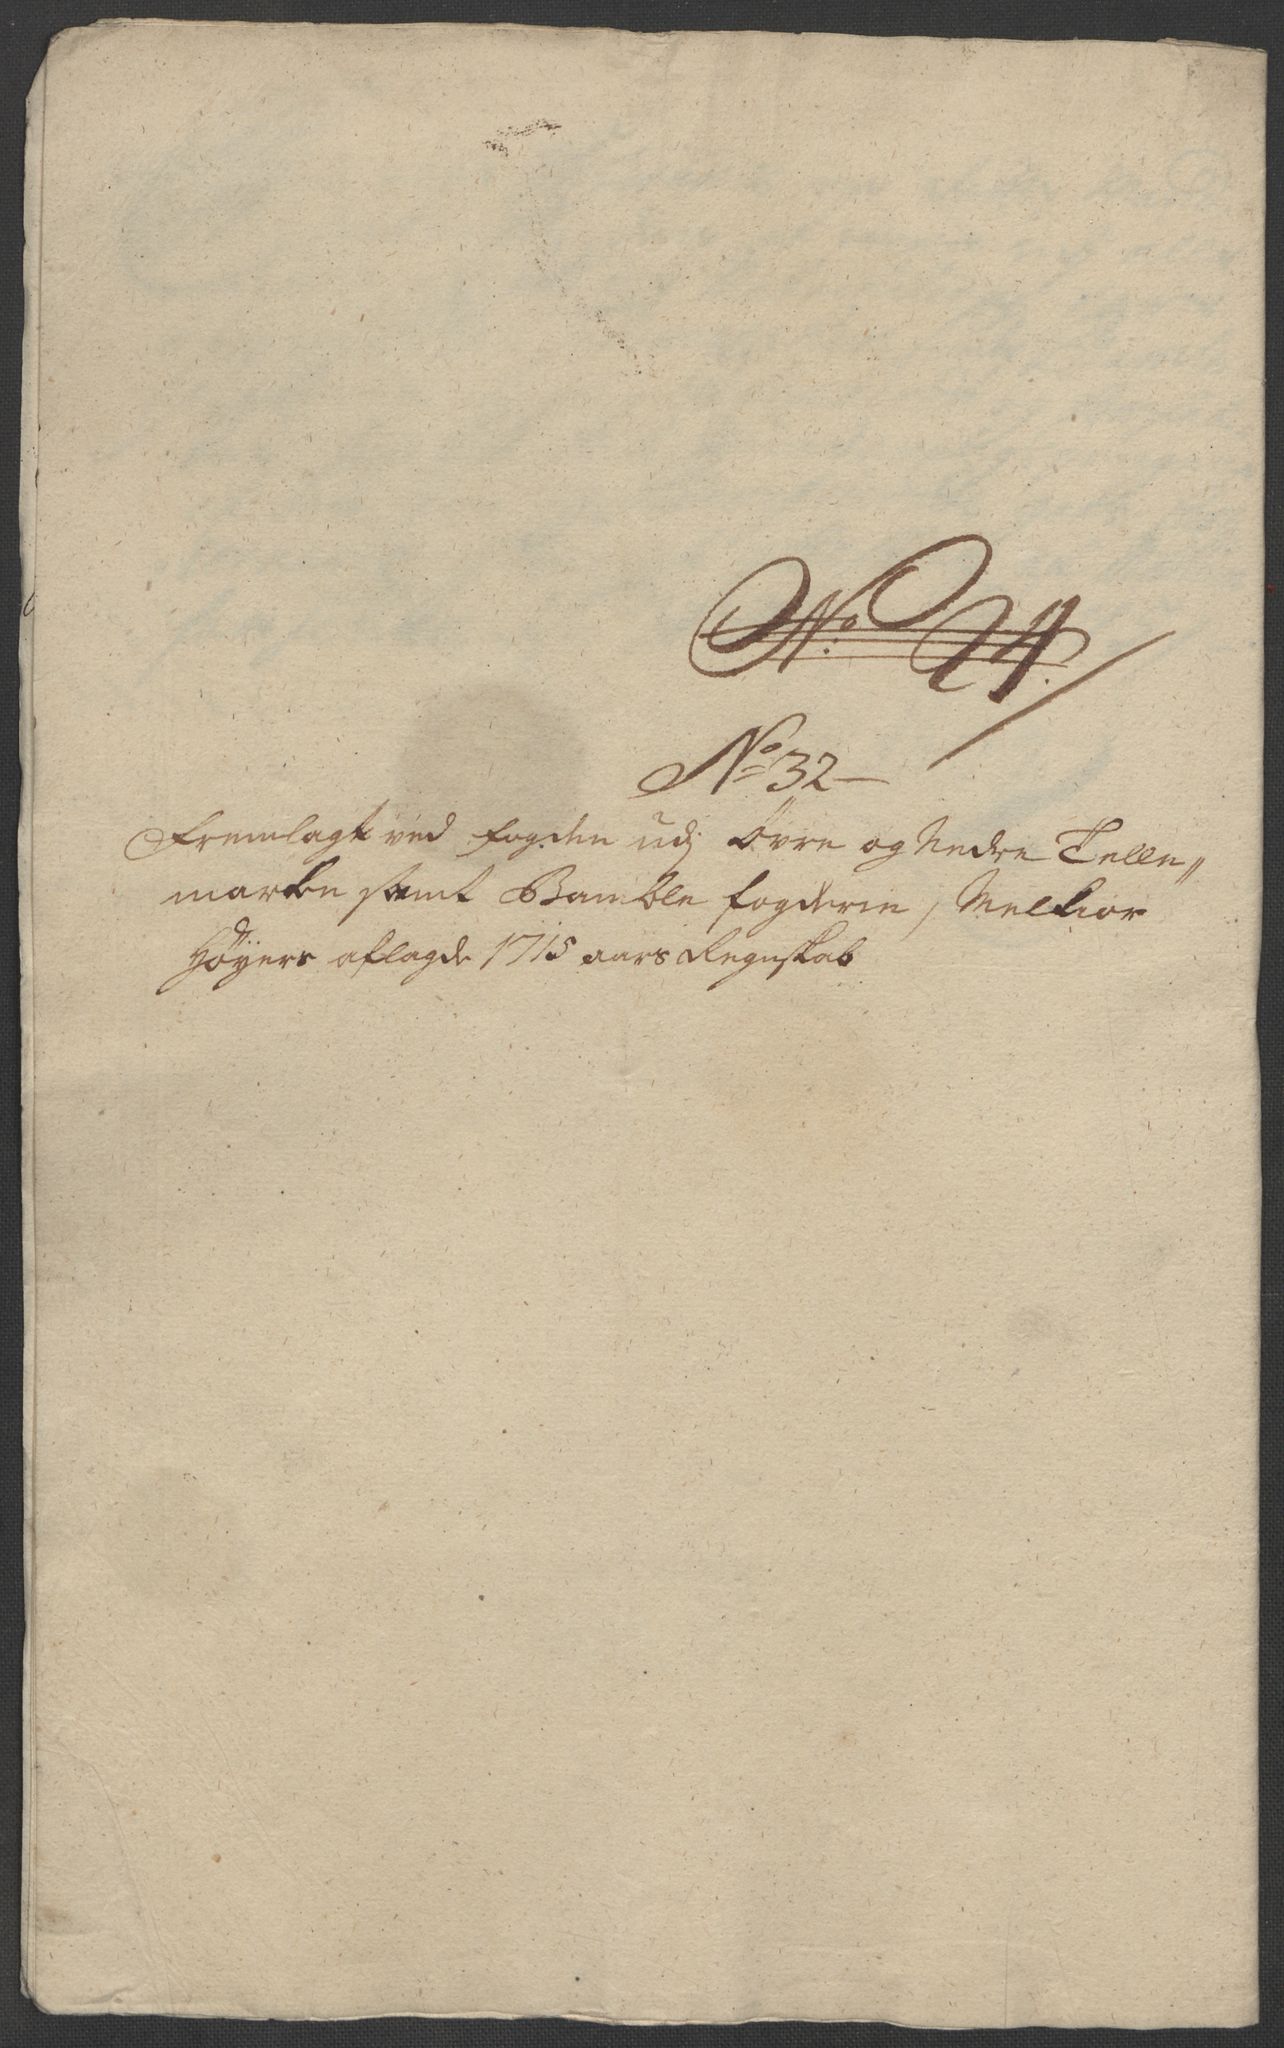 No 24.
No 32
Fremlagt ved fogden udj Øvre og Nedre Telle„
marken samt Bamble fogderie, Melkior
Høÿers aflagde 1715 aars Regnskab